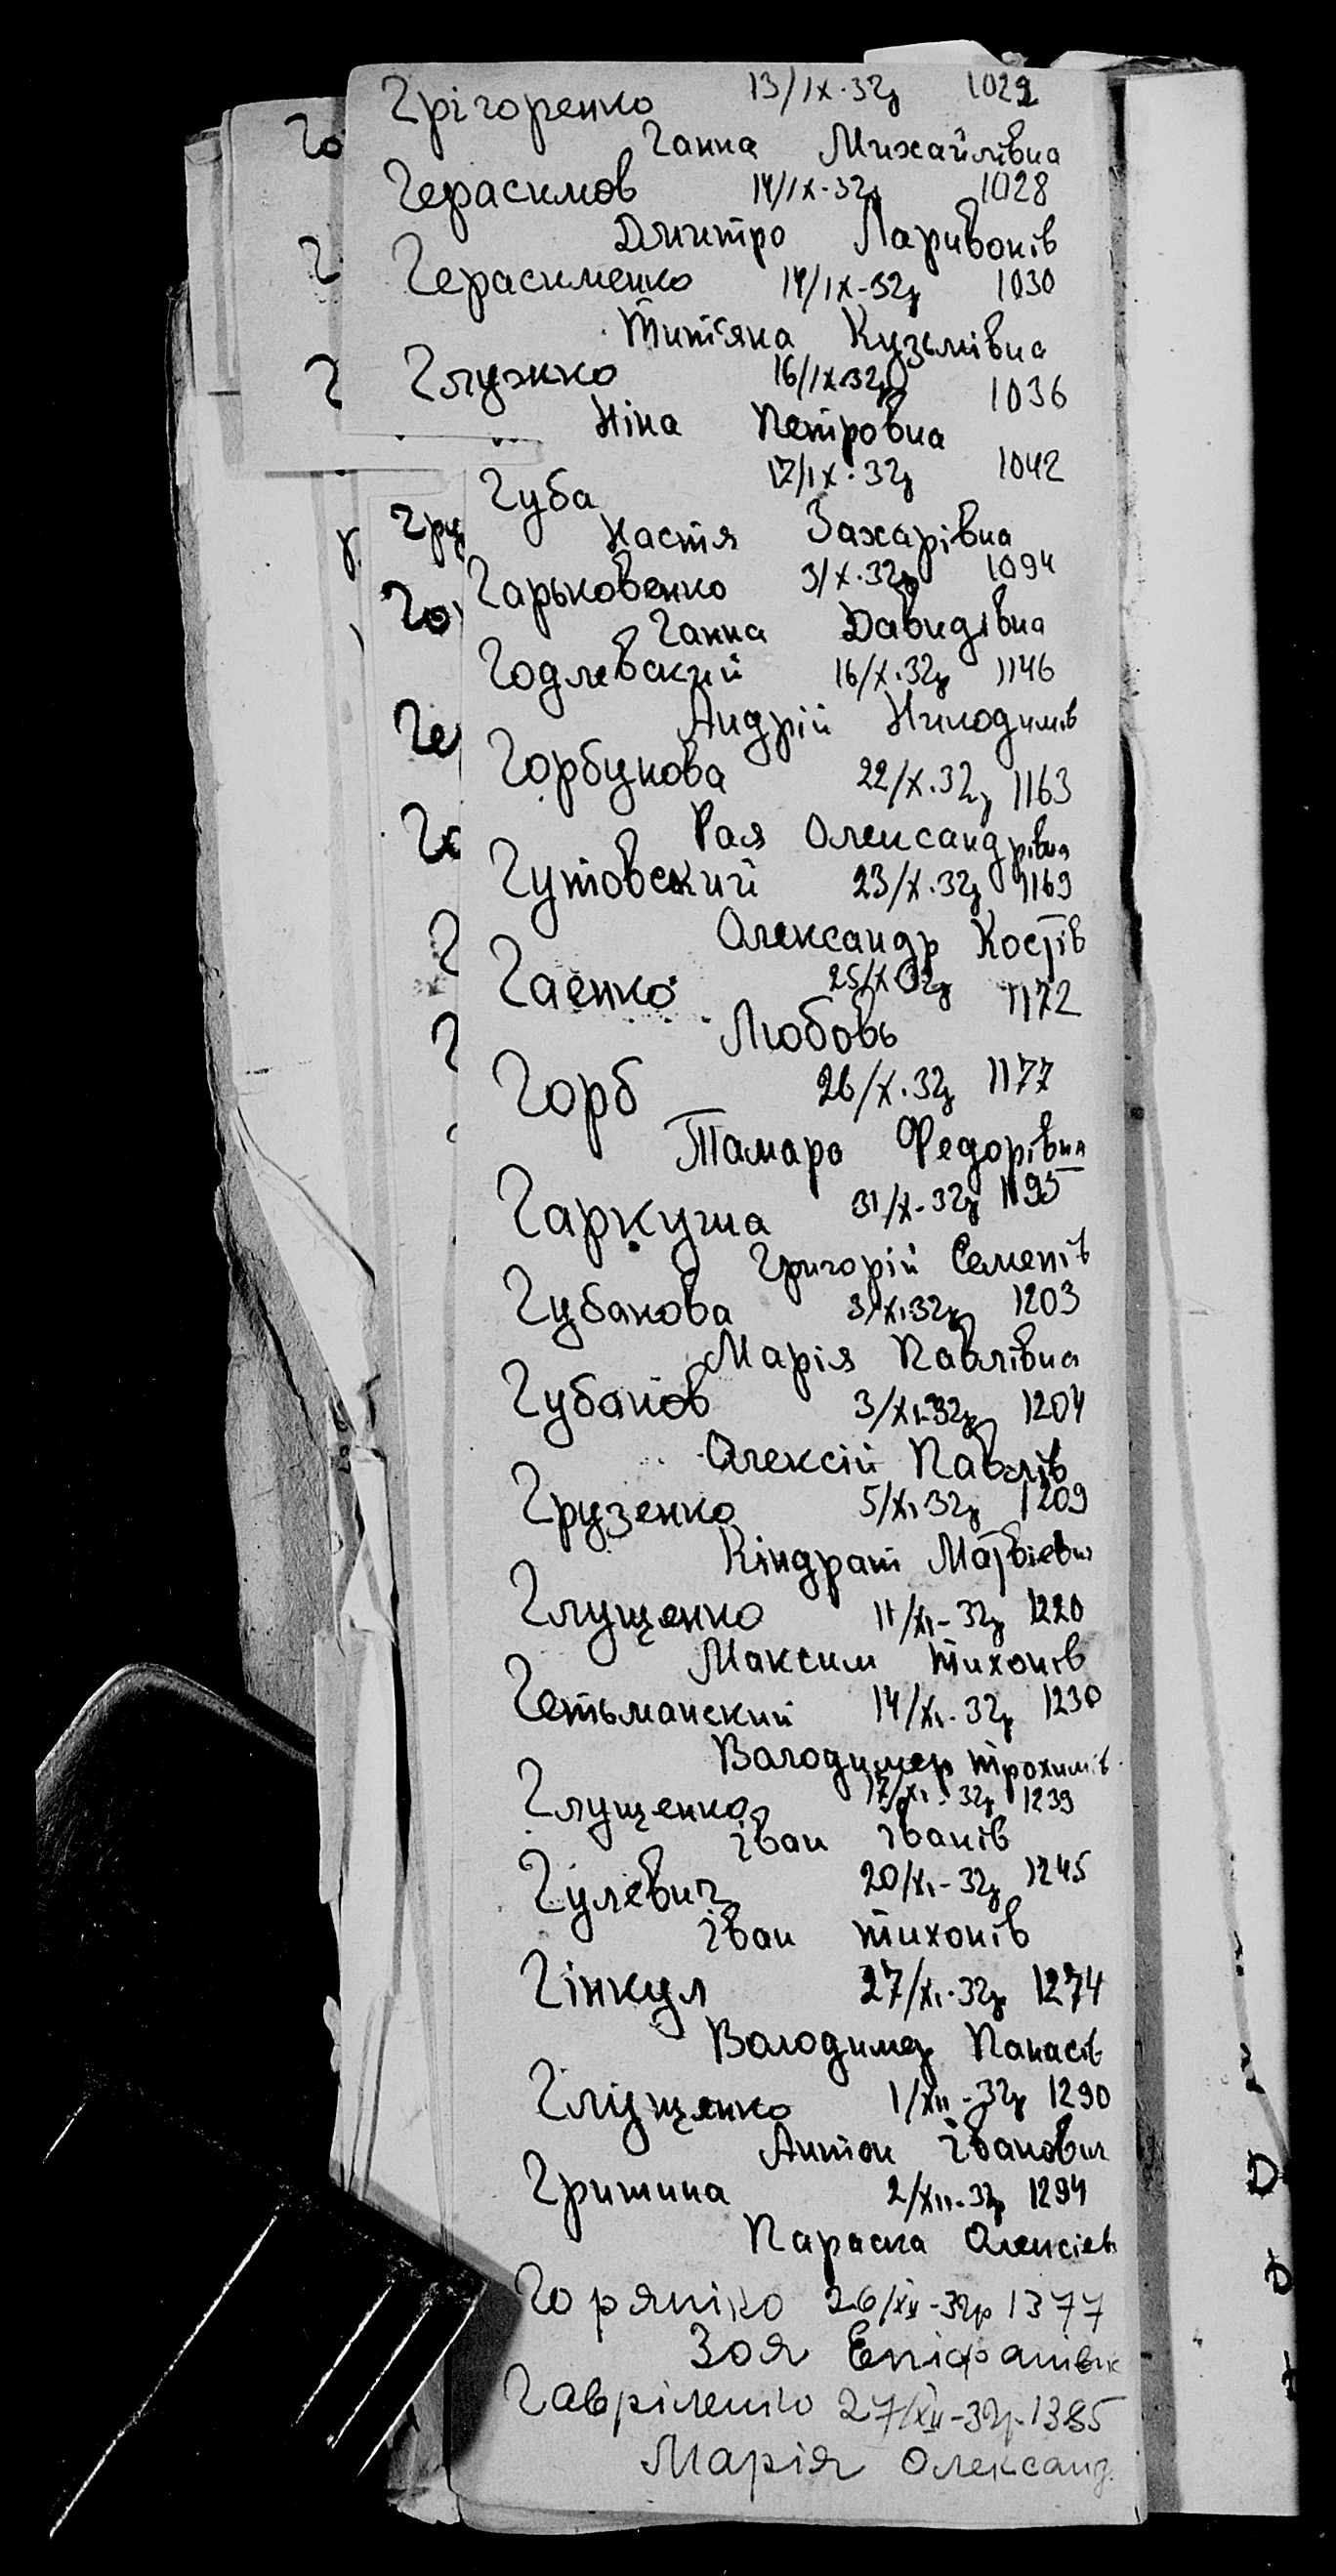 Грігоренко 13/IX-32р 1029
Ганна Михайлівна
Герасимов 14/IX-32р 1028
Дмитро Ларивонів
Герасименко 14/IX-32р 1030
Тит'яна Кузьмівна
Глужко 16/IX-32р 1036
Ніна Петровна
Губа 17/IX-32р 1042
Настя Захарівна
Гарьковенко 3/X-32р 1094
Ганна Давидівна
Годлевский 16/X-32р 1146
Андрій Никодимів
Горбунова 22/X-32р 1163
Рая Олександрівна
Гутовский 23/X-32р 1169
Олександр Костів
Гаенко 25/X-32р 1172
Любовь
Горб 26/X-32р 1177
Тамара Федорівна
Гаркуша 31/X-32р 1195
Григорій Семенів
Губанова 3/XI-32р 1203
Марія Павлівна
Губанов 3/XI-32р 1204
Олексій Павлів
Грузенко 5/XI-32р 1209
Кіндрат
Глущенко 11/XI-32р 1220
Максим Тихонів
Гетьманский 14/XI-32р 1230
Володимер Трохимів
Глущенко 17/XI-32р 1239
Іван Іванів
Гулевич 20/XI-32р 1245
Іван Тихонів
Гінкул 27/XI-32р 1274
Володимер Панасів
Гліущенко 1/XII-32р 1290
Антон Іванович
Гришина 2/XII-32р 1294
Параска Олексіев
26/XII-32р 1377
Зоя Епіфанівн
Гавріленко 27/XII-32р-1385
Марія Александ.